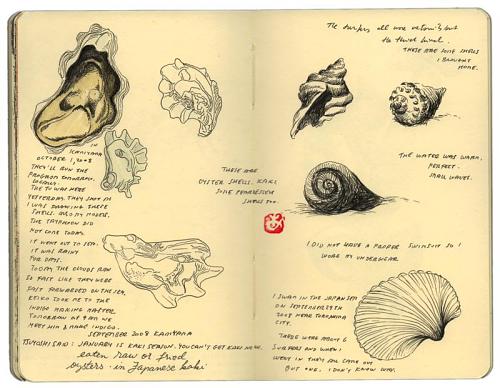 IN
KAMIYAMA
OCTOBER 1, 2008
THEY'LL RUN THE
PROGRAM TOMORROW,
THE TV WAS HERE
YESTERDAY. THEY SHOT AS
I WAS DRAWING THESE
SHELLS. ALSO MY MODELS.
THE TYPHOON DID
NOT COME TODAY.
IT WENT OUT TO SEA.
IT WAS RAINY
FOR DAYS.
TODAY THE CLOUDS RAN
SO FAST LIKE THEY WERE
FAST FORWARDED ON THE SEA.
KEIKO TOOK ME TO THE
INDIGO MAKING MASTER.
TOMORROW AT 9 AM WE
MEET HIM & MAKE INDIGO.
SEPTEMBER 2008 KAMIYAMA
TSUYOSHI SAN: JANUARY IS KAKI SEASON. YOU CAN'T GET KAKI NOW.
eaten raw or fried
oysters - in Japanese kaki
THESE ARE
OYSTER SHELLS. KAKI.
SOME
SHELLS TOO.
The surfers all wore
THESE ARE SOME SHELLS
I BROUGHT
HOME.
THE WATER WAS WARM,
PERFECT.
SMALL WAVES.
I DID NOT HAVE A PROPER SWIMSUIT SO I
WORE MY UNDERWEAR
I SWAM IN THE JAPAN SEA
ON SEPTEMBER 29TH
2008 NEAR TOKUSHIMA
CITY.
THERE WERE ABOUT 6
SURFERS AND WHEN I
WENT IN THEY ALL CAME OUT
BUT ONE. I DON'T KNOW WHY.